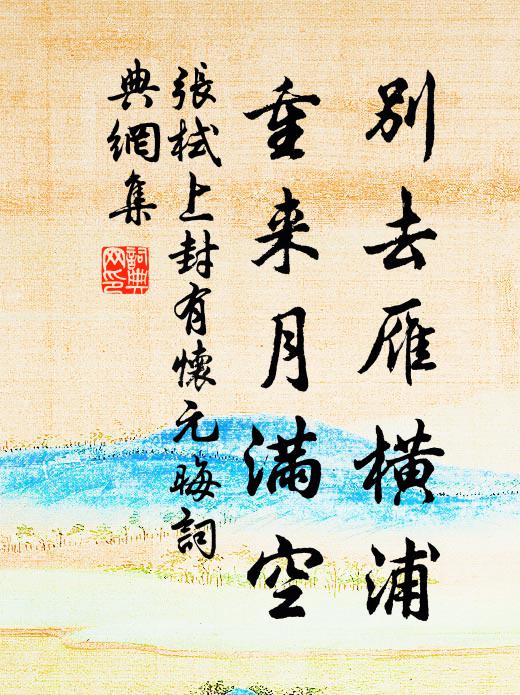 別去雁橫浦
重来月滿空
張栻上封有懷元晦詞
典網集
詞典
网印